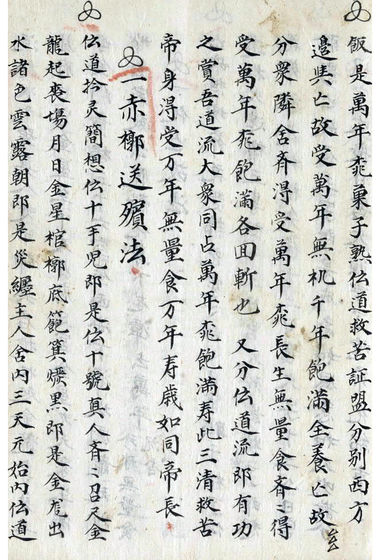 飯是萬年桃菓子熟伝道救苦証盟分别西方
邉與亡故受萬年無机千年飽滿全養亡故
分衆隣舍斉得受萬年桃長生無量食斉〻得
受萬年桃飽滿各回斬也 又分伝道流即有功
之賞吾道流大衆同占萬年桃飽滿寿此三清救苦
帝身得受万年無量食万年寿歳如同帝長
一赤槨送殯法
伝道拎灵簡想伝十手児即是伝十號真人斉〻召尺金
龍起喪場月日金星棺槨底範箕燥黒即是金龙出
水諸色雲露朝即是災纏主人舍内三天元始内伝道